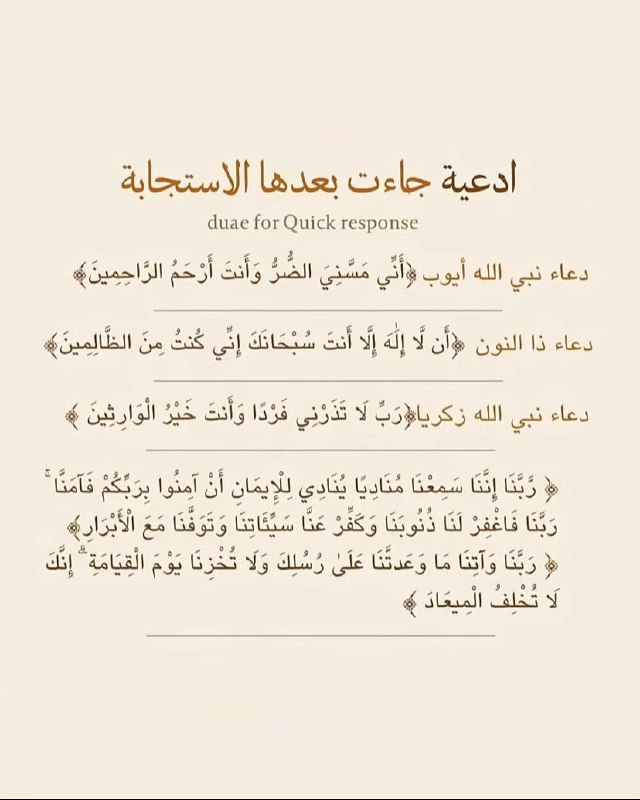 ادعية جاءت بعدها الاستجابة
duae for Quick response
دعاء نبي الله أيوب ﴿أَنِّي مَسَّنِيَ الضُّرُّ وَأَنتَ أَرْحَمُ الرَّاحِمِينَ﴾
دعاء ذا النون ﴿أَن لَّا إِلَٰهَ إِلَّا أَنتَ سُبْحَانَكَ إِنِّي كُنتُ مِنَ الظَّالِمِينَ﴾
دعاء نبي الله زكريا﴿رَبِّ لَا تَذَرْنِي فَرْدًا وَأَنتَ خَيْرُ الْوَارِثِينَ ﴾
﴿ رَّبَّنَا إِنَّنَا سَمِعْنَا مُنَادِيًا يُنَادِي لِلْإِيمَانِ أَنْ آمِنُوا بِرَبِّكُمْ فَآمَنَّا ۚ
رَبَّنَا فَاغْفِرْ لَنَا ذُنُوبَنَا وَكَفِّرْ عَنَّا سَيِّئَاتِنَا وَتَوَفَّنَا مَعَ الْأَبْرَارِ﴾
﴿ رَبَّنَا وَآتِنَا مَا وَعَدتَّنَا عَلَىٰ رُسُلِكَ وَلَا تُخْزِنَا يَوْمَ الْقِيَامَةِ ۗ إِنَّكَ
لَا تُخْلِفُ الْمِيعَادَ ﴾